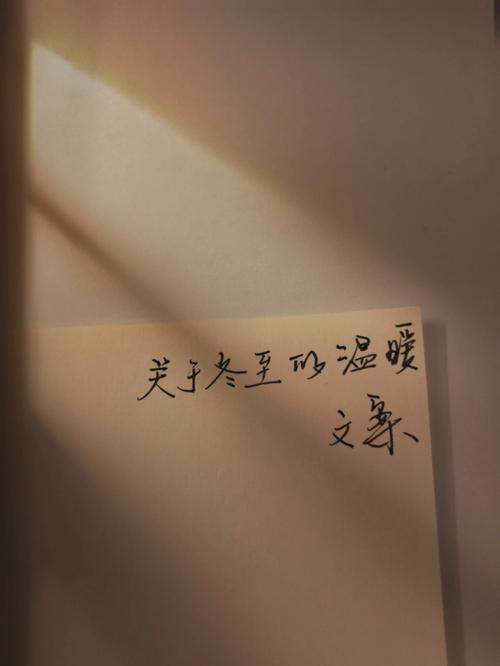 关于冬至的温暖
文案